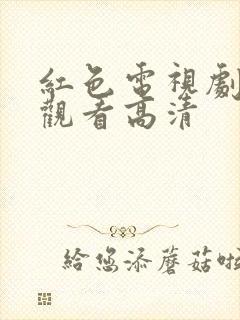 紅色電視劇
觀看高清
給您添蘑菇啦